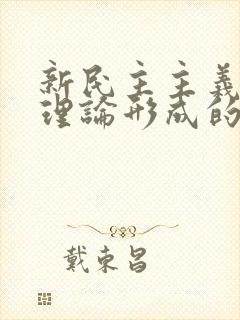 新民主主義
理論形成的
戴东昌